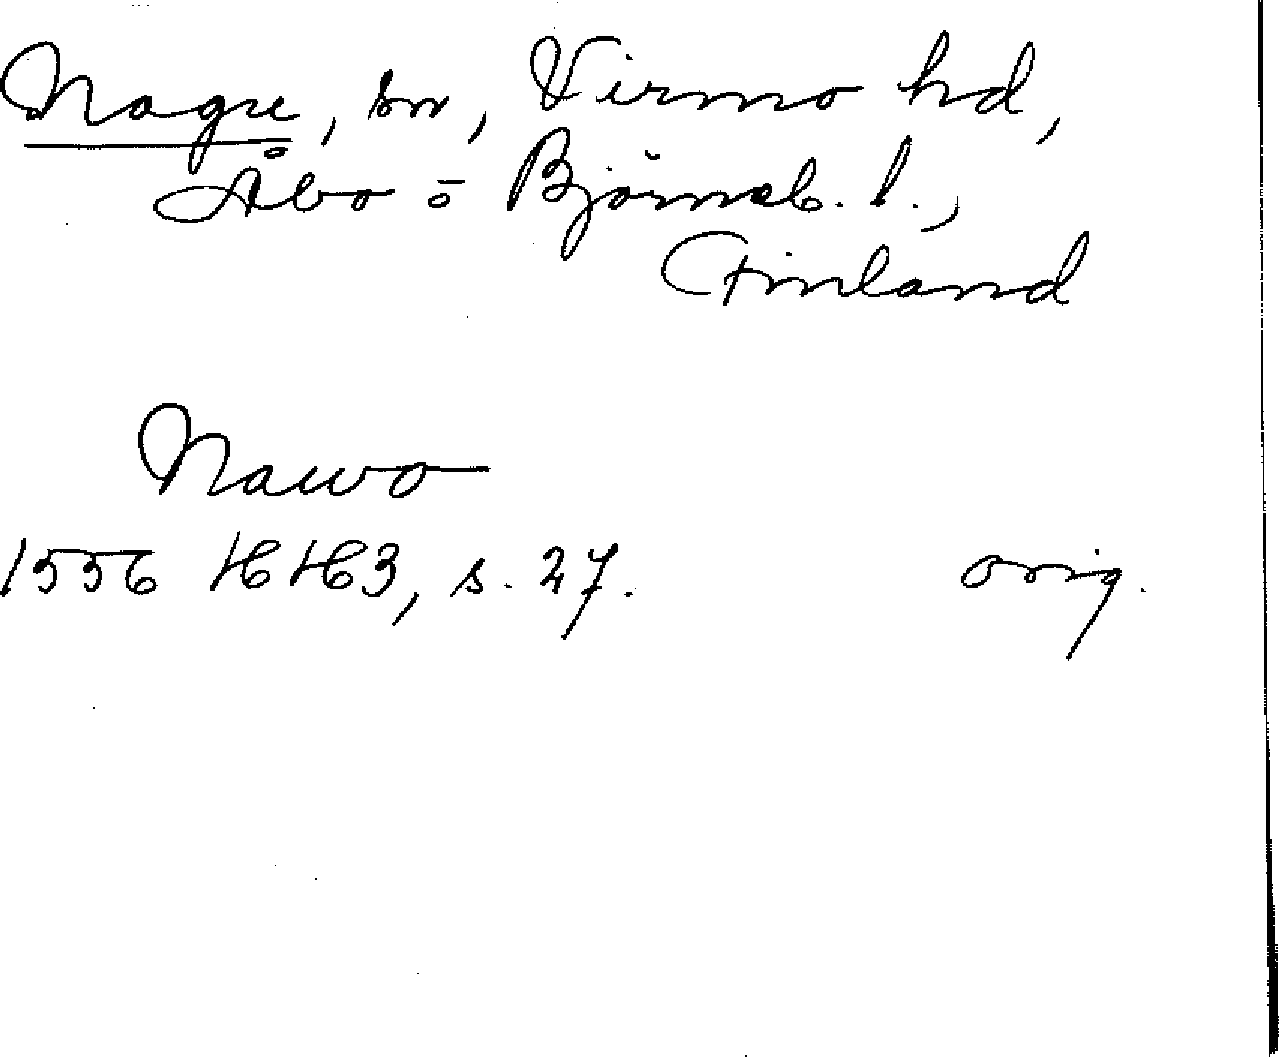 Nagu, sn, Virmo hd,
Åbo o Björneb. l.,
Finland
Nawo
1556 HH3, s. 27.
orig.